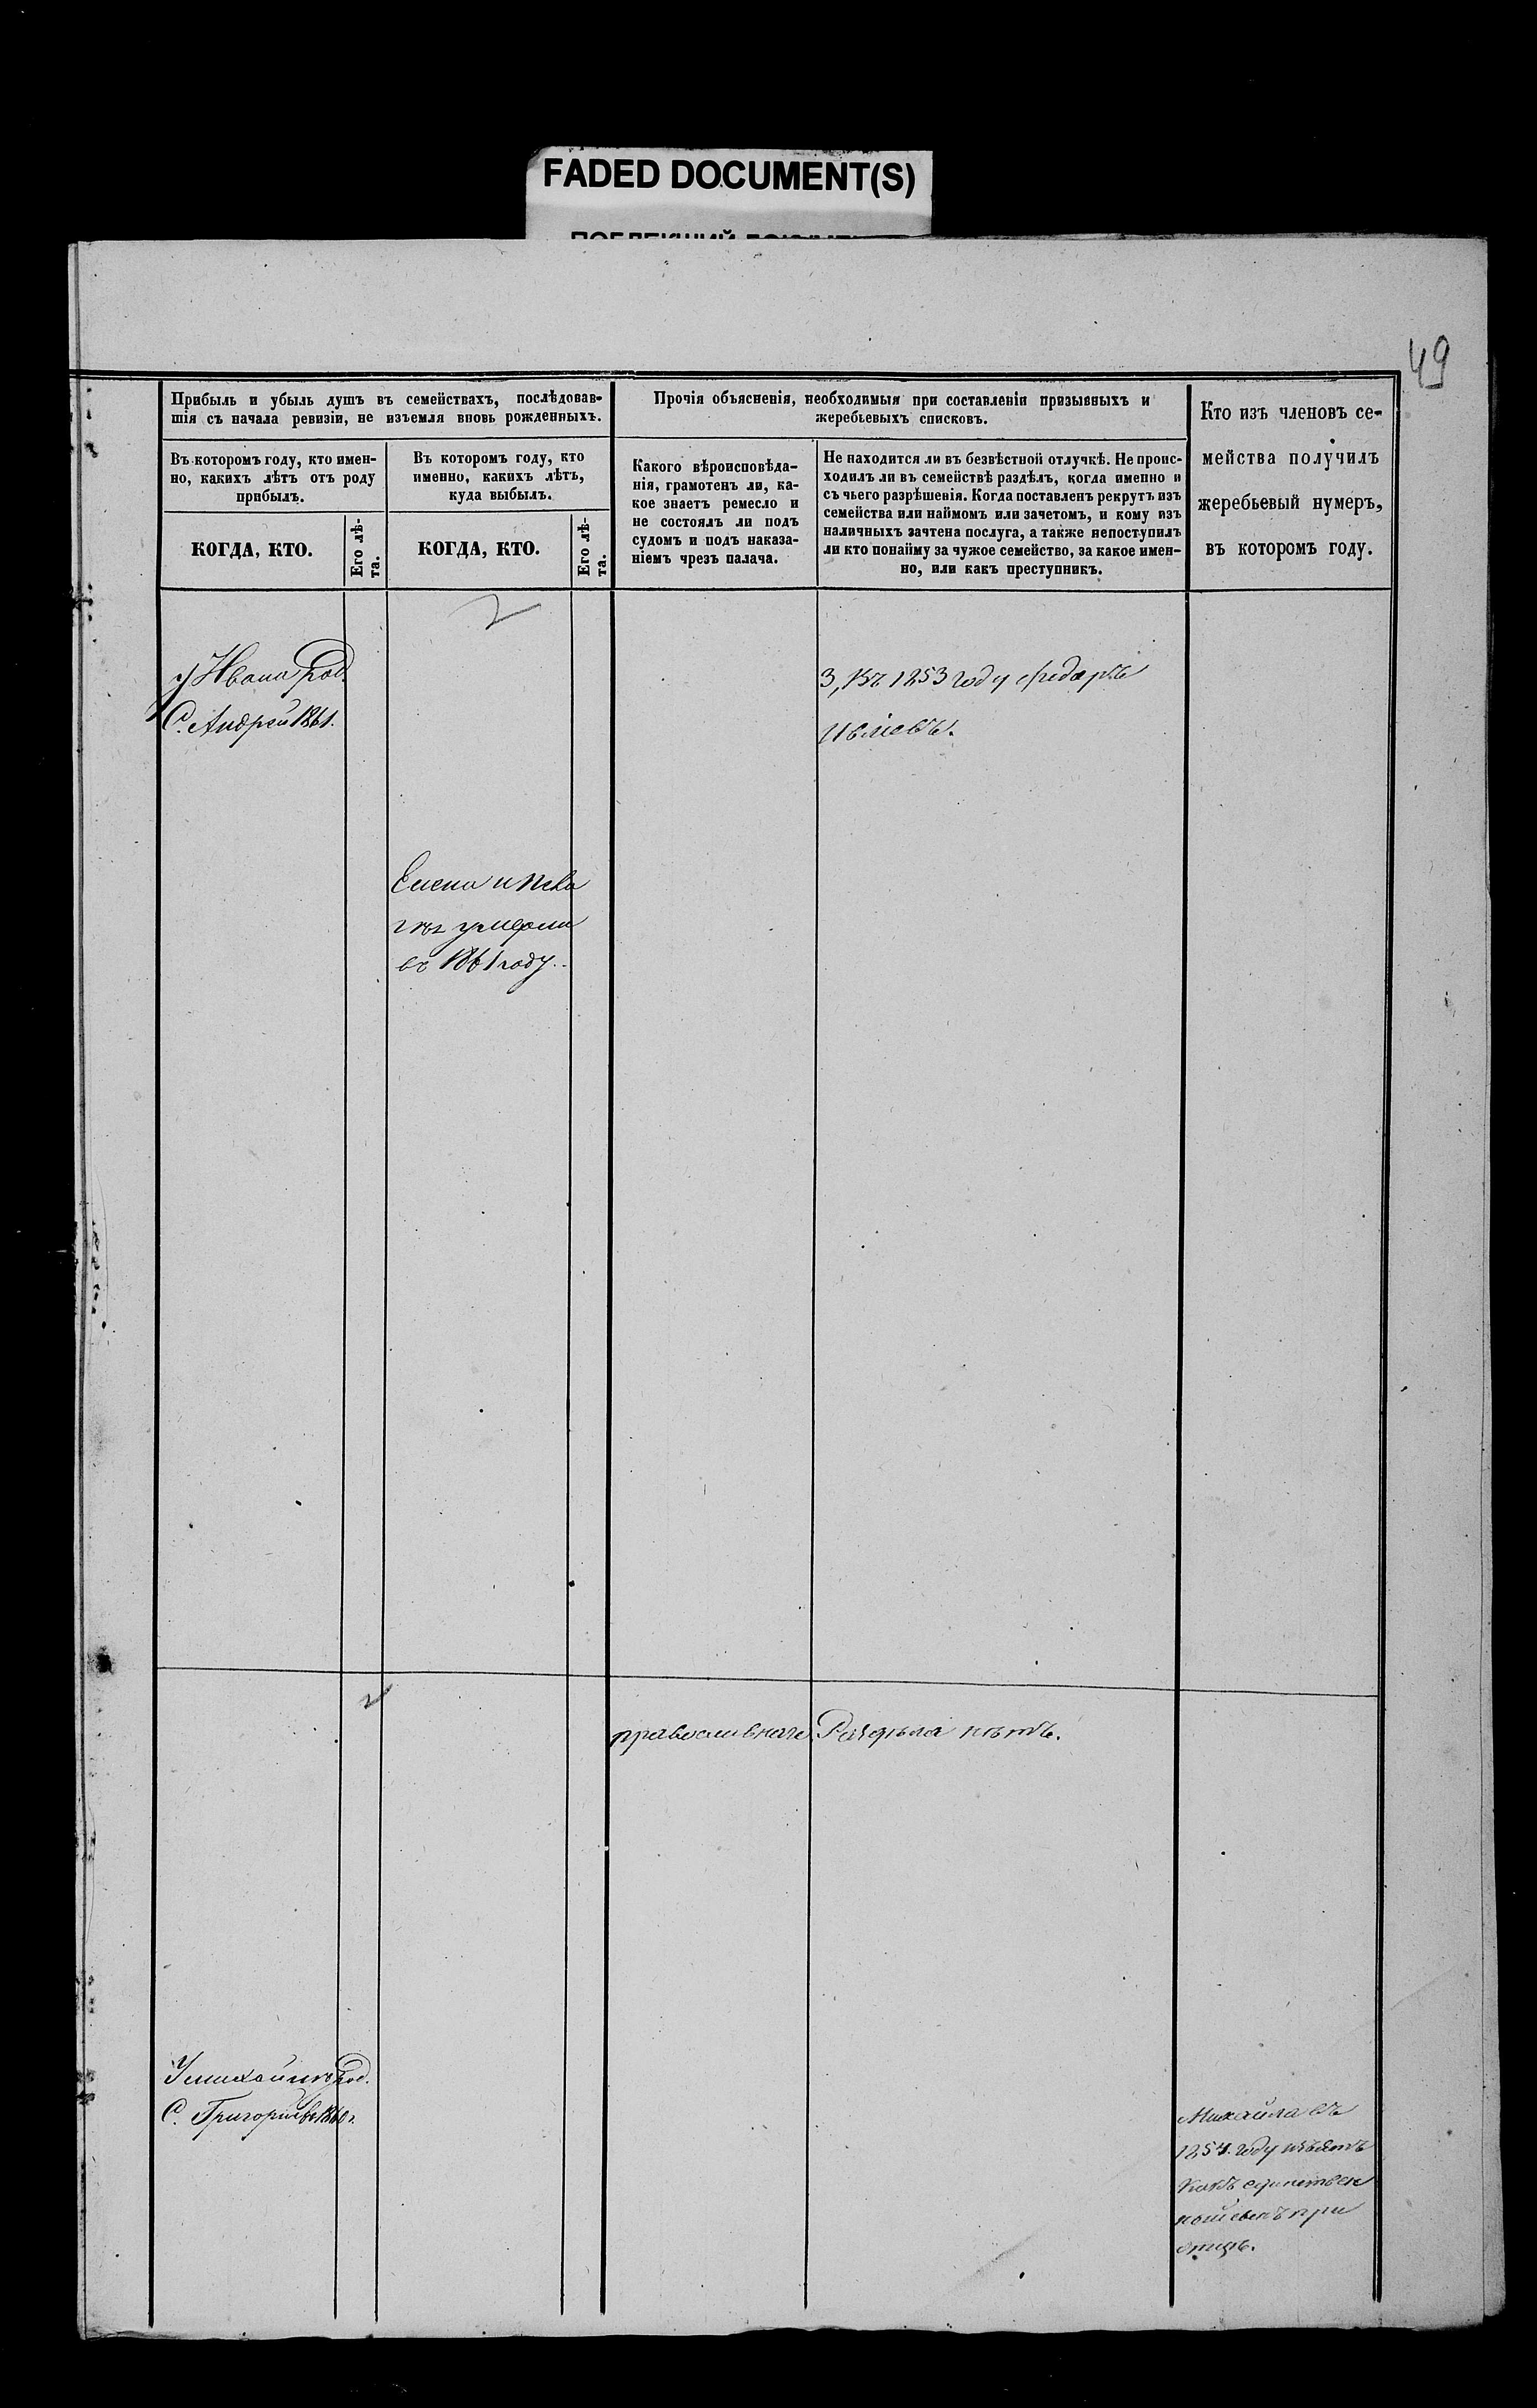 FADED DOCUMENT(S)
49
Прибыль и убыль душъ въ семействахъ, послѣдовав-
шія съ начала ревизіи, не изъемля вновь рожденныхъ.
Въ которомъ году, кто имен-
но, какихъ лѣтъ отъ роду
прибылъ.
КОГДА, КТО.
Его лѣ-
та.
Въ которомъ году, кто
именно, какихъ лѣтъ,
куда выбылъ.
КОГДА, КТО.
Его лѣ-
та.
Прочія объясненія, необходимыя при составленіи призывныхъ и
жеребьевыхъ списковъ.
Какого вѣроисповѣда-
нія, грамотенъ ли, ка-
кое знаетъ ремесло и
не состоялъ ли подъ
судомъ и подъ наказа-
ніемъ чрезъ палача.
Не находится ли въ безвѣстной отлучкѣ. Не проис-
ходилъ ли въ семействѣ раздѣлъ, когда именно и
съ чьего разрѣшенія. Когда поставленъ рекрутъ изъ
семейства или наймомъ или зачетомъ, и кому изъ
наличныхъ зачтена послуга, а также непоступилъ
ли кто понайму за чужое семейство, за какое имен-
но, или какъ преступникъ.
Кто изъ членовъ се-
мейства получилъ
жеребьевый нумеръ,
въ которомъ году.
У Ивана род.
С. Андрей 1861.
3, Въ 1853 году
Елена и
умерли
въ 1861 году.
православнаго
Раздѣла нѣтъ.
У михайлы род.
С. Григорій 1860 г.
Михайла въ
1854. году изъятъ
какъ единствен
ной сынъ при
отцѣ.